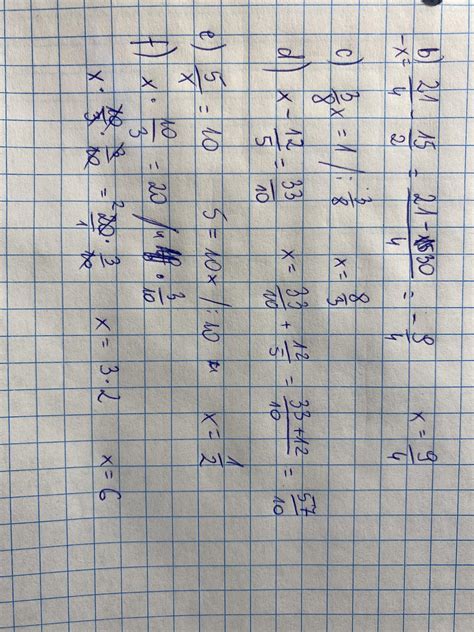 b) -x = 21/4 - 15/2 = (21 - 30)/4 = -9/4 x = 9/4
c) 3/8 x = 1 /: 3/8 x = 8/3
d) x - 12/5 = 33/10 x = 33/10 + 12/5 = (33 + 12)/10 = 57/10
e) 5/x = 10 5 = 10x /: 10 x = 1/2
f) x · 10/3 = 20 / · 3/10
x · 10/3 · 3/10 = 20 · 3/10 x = 3 · 2 x = 6